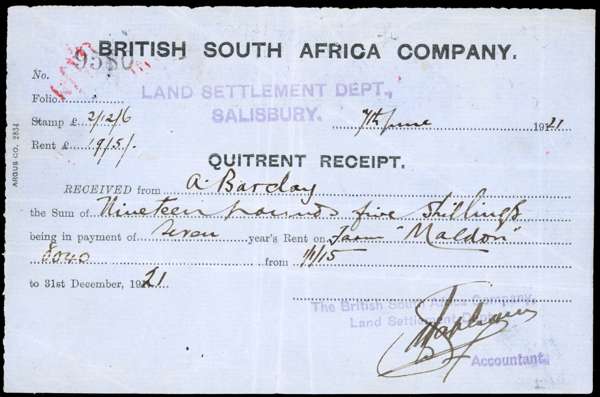 BRITISH SOUTH AFRICA COMPANY.
No. 9580
Folio
LAND SETTLEMENT DEPT.,
SALISBURY.
Stamp £ 2/12/6
7th June 1921
Rent £ 19/5/-
ARGUS CO. 2834
QUITRENT RECEIPT.
RECEIVED from A. Barclay
the Sum of Nineteen pounds five shillings
being in payment of seven year's Rent on Farm "Maldon"
from 1/1/15
to 31st December, 1921
The British South Africa Company,
Land Settlement
Accountant.